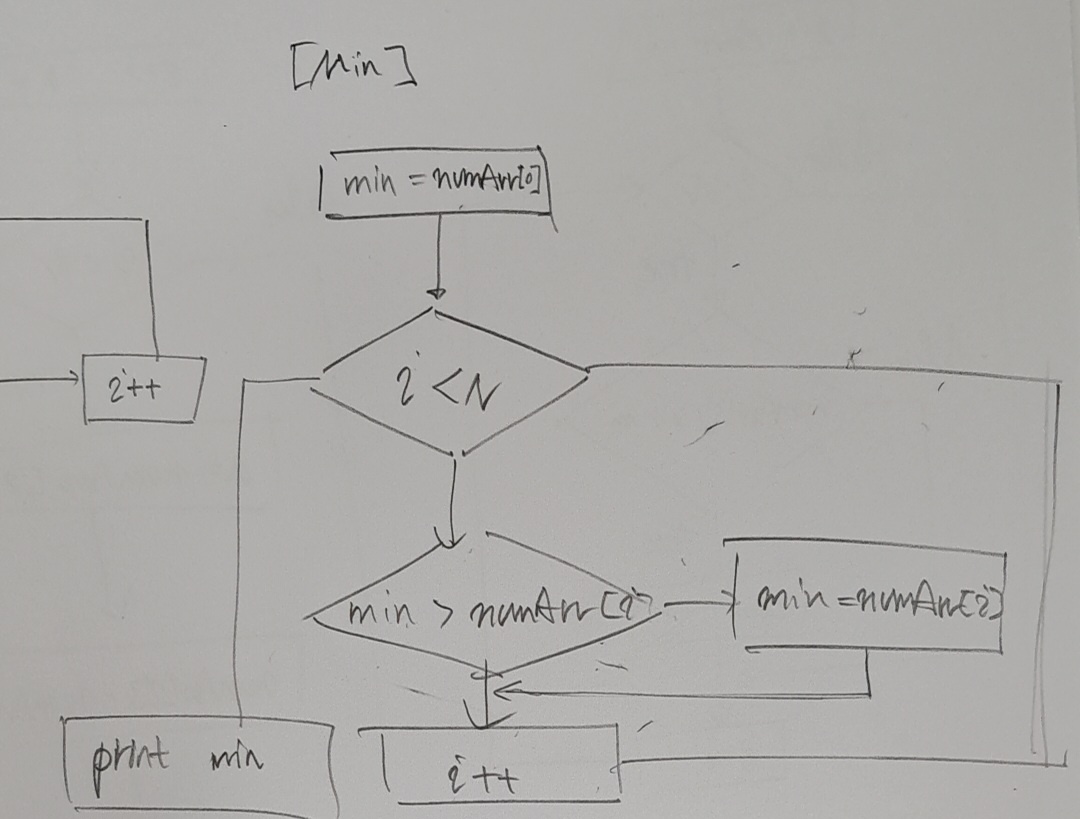 [Min]
min = numArr[0]
i++
i < N
min > numArr[i]
min = numArr[i]
print min
i++